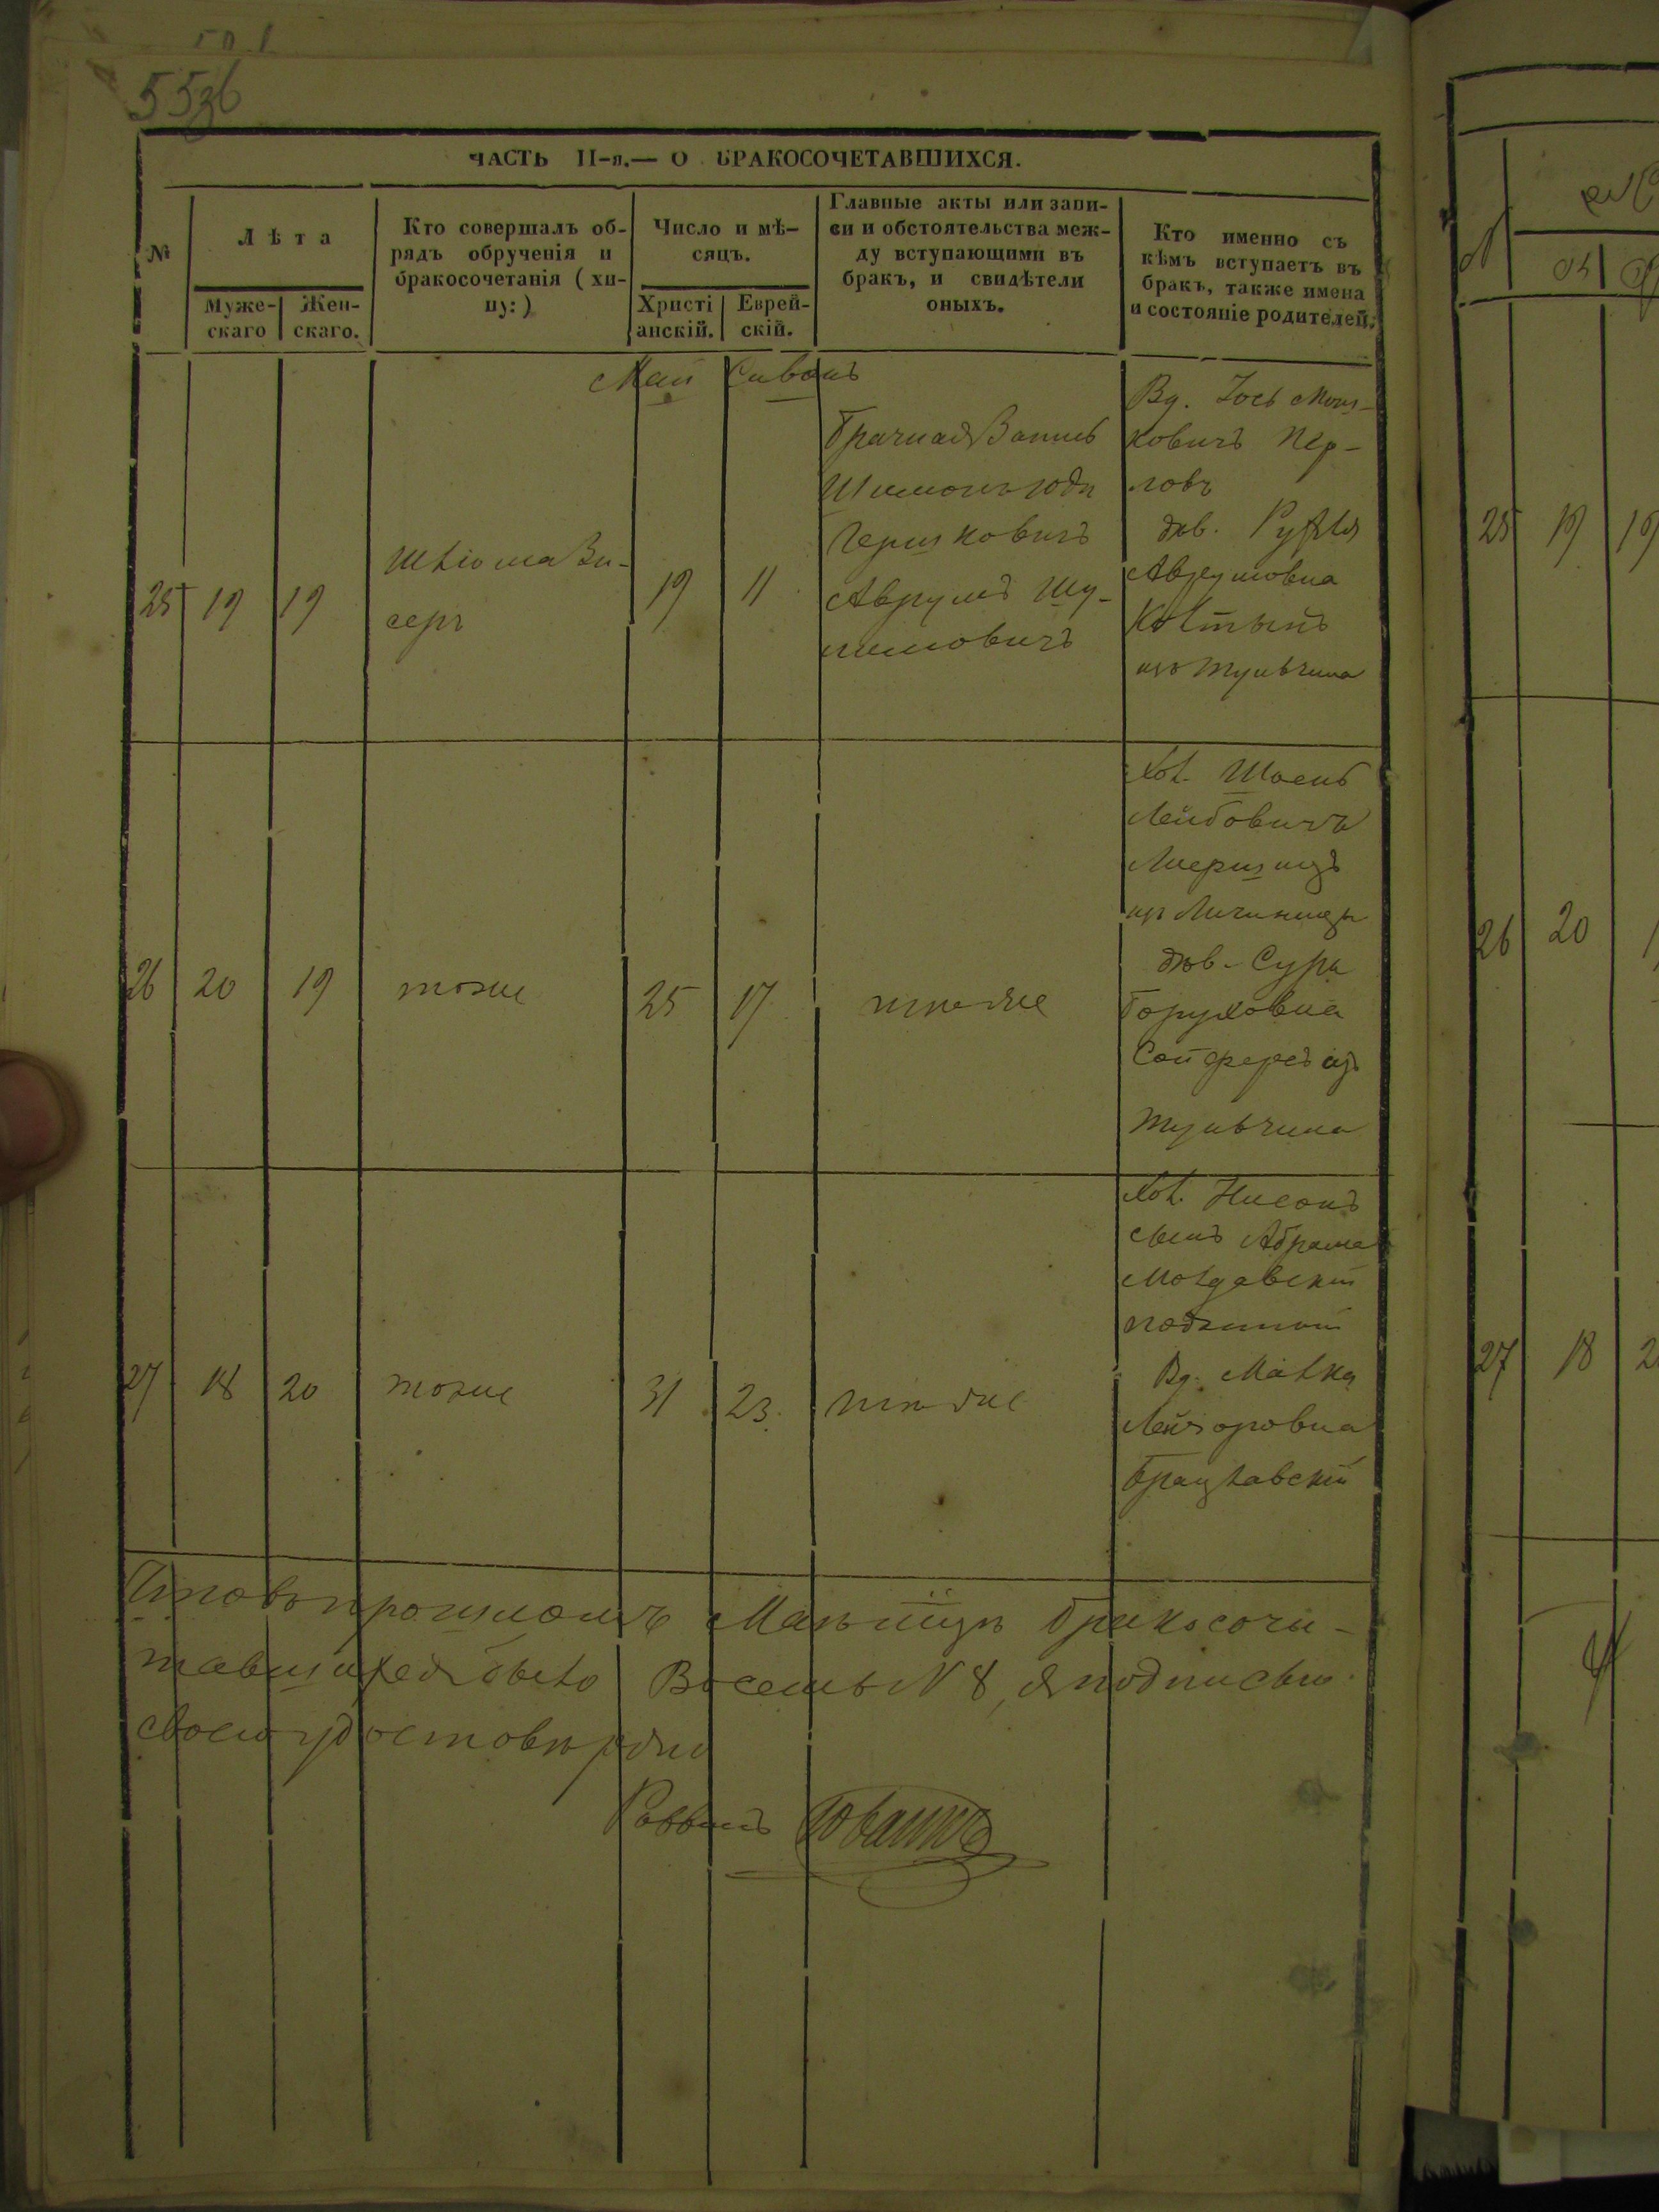 553б
ЧАСТЬ II-я.— О БРАКОСОЧЕТАВШИХСЯ.
№
Лѣта
Муже-
скаго
Жен-
скаго.
Кто совершалъ об-
рядъ обрученія и
бракосочетанія (хи-
пу:)
Число и мѣ-
сяцъ.
Христі
анскій.
Еврей-
скій.
Главные акты или запи-
си и обстоятельства меж-
ду вступающими въ
бракъ, и свидѣтели
оныхъ.
Кто именно съ
кѣмъ вступаетъ въ
бракъ, также имена
и состояніе родителей.
Май Сиванъ
25
19
19
Шліома Ви-
серъ
19
11
Брачная Запись
Шимонъ Юда
Гершковичъ
Аврумъ Шу-
лимовичъ
Вд. Іось Мош-
ковичъ Пер-
ловъ
дѣв. Рухля
Аврумовна
Колтынъ
изъ Тульчина
26
20
19
тоже
25
17
тоже
Хол. Шоель
Лейбовичъ
Лифшицъ
изъ
дѣв. Сура
Боруховна
Сойферъ изъ
Тульчина
27
18
20
тоже
31
23
тоже
Хол. Нисонъ
сынъ Абрама
Молдавскій
подданный
Вд. Малка
Лейзоровна
Брацлавскій
Что въ прошломъ Маѣ мѣсяцѣ бракосоче-
тавшихся было Восемь N 8, я подписью
своею удостовѣряю
Раввинъ
25
19
19
26
20
27
18